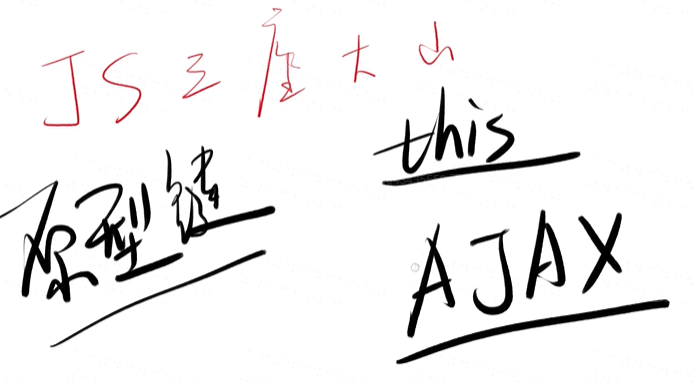 JS三座大山
this
原型链
AJAX